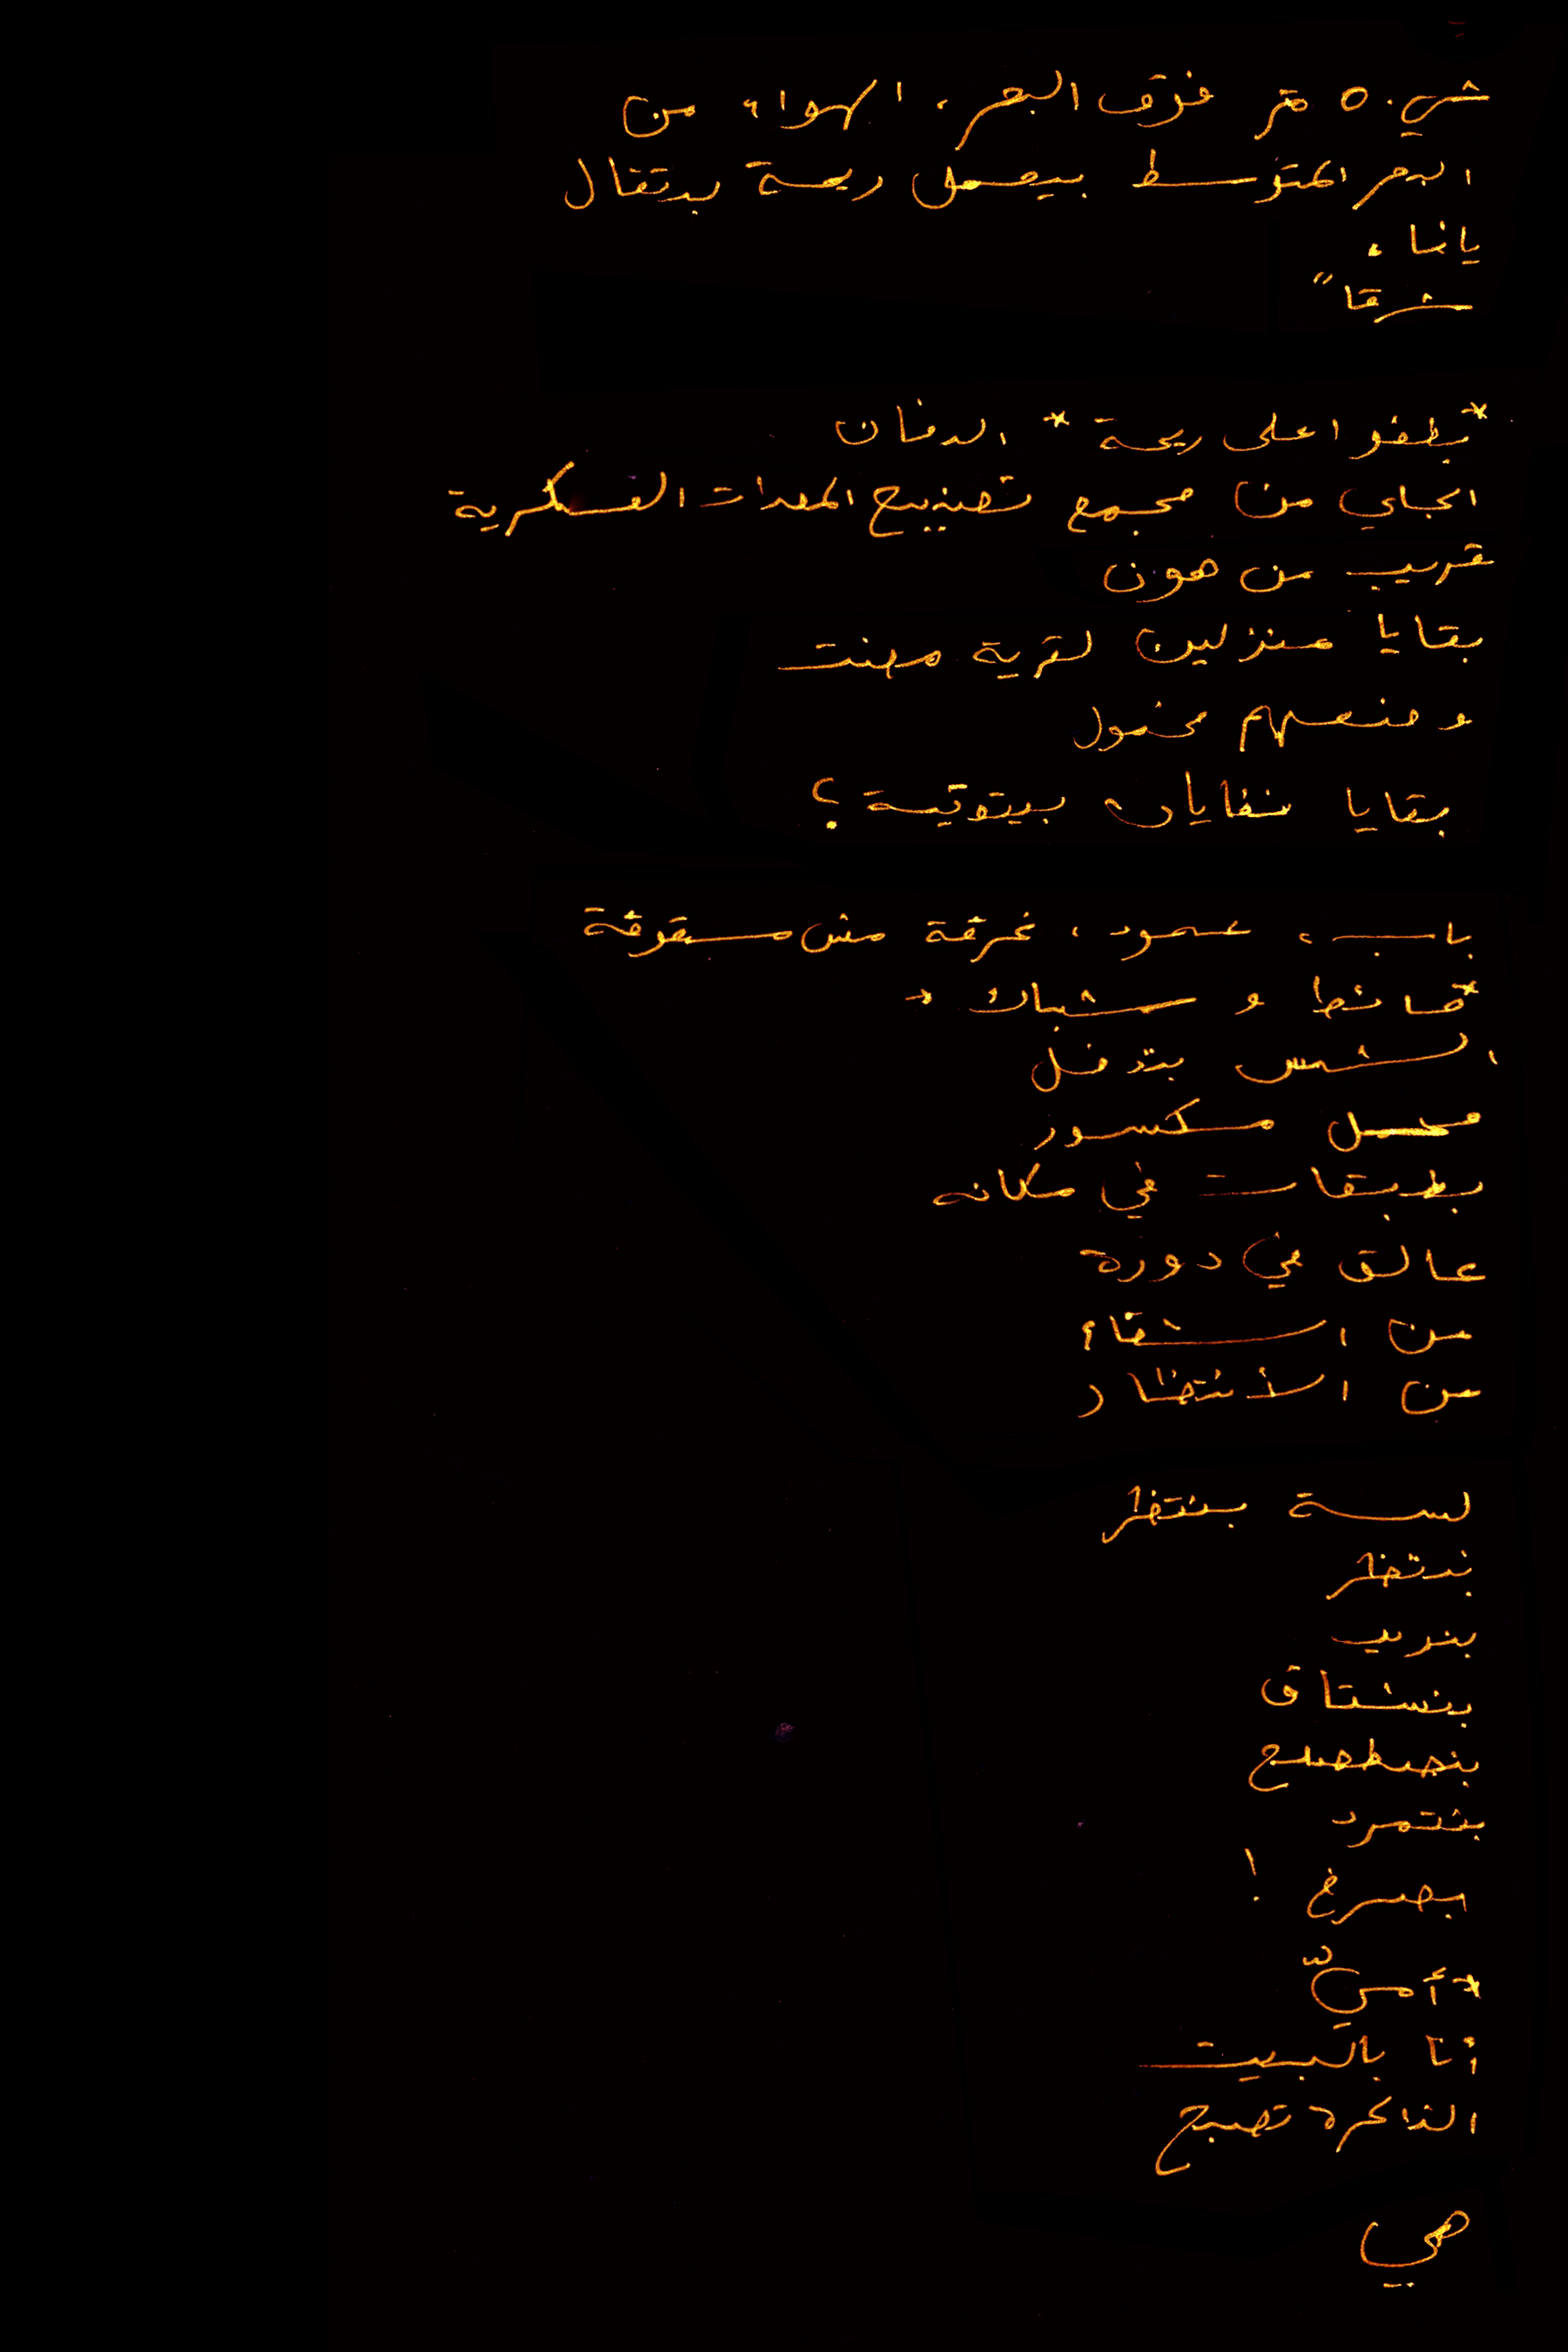 شي ٥٠ متر فوق البحر، الهواء من
البحر المتوسط بيحمل ريحة برتقال
يافا،
شرقاً
*بطغو اعلى ريحة* الدخان
الجاي من مجمع تصنيع المعدات العسكرية
قريب من هون
بقايا منزلين لقرية مهنت
وضعهم مجهول
بقايا نفايات بيتوتية؟
باب، عمود، غرفة مش مسقوفة
*حائط و شباك*
الشمس بتدخل
محمل مكسور
بطبقات في مكانه
عالق في دورة
من الشقاء
من الأنتظار
لسة بنتظر
بنتظر
بنريد
بنشتاق
بنصطصلح
بنتمرد
بصرخ!
*أمسّ
أنا بالبيت
الذاكرة تصبح
هي